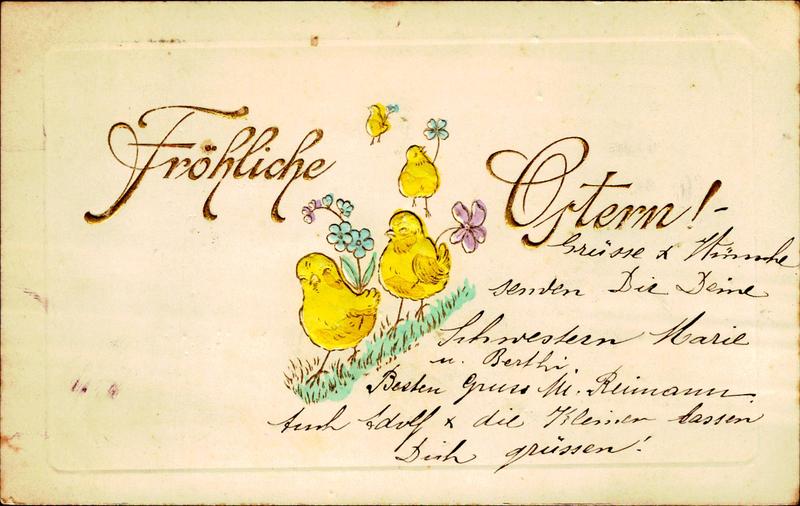 Fröhliche Ostern!
Grüsse & Wünsche
senden Dir Deine
Schwestern Marie
u. Berthi
Besten Gruss M. Reimann
Auch Adolf & die Kleinen lassen
Dich grüssen!